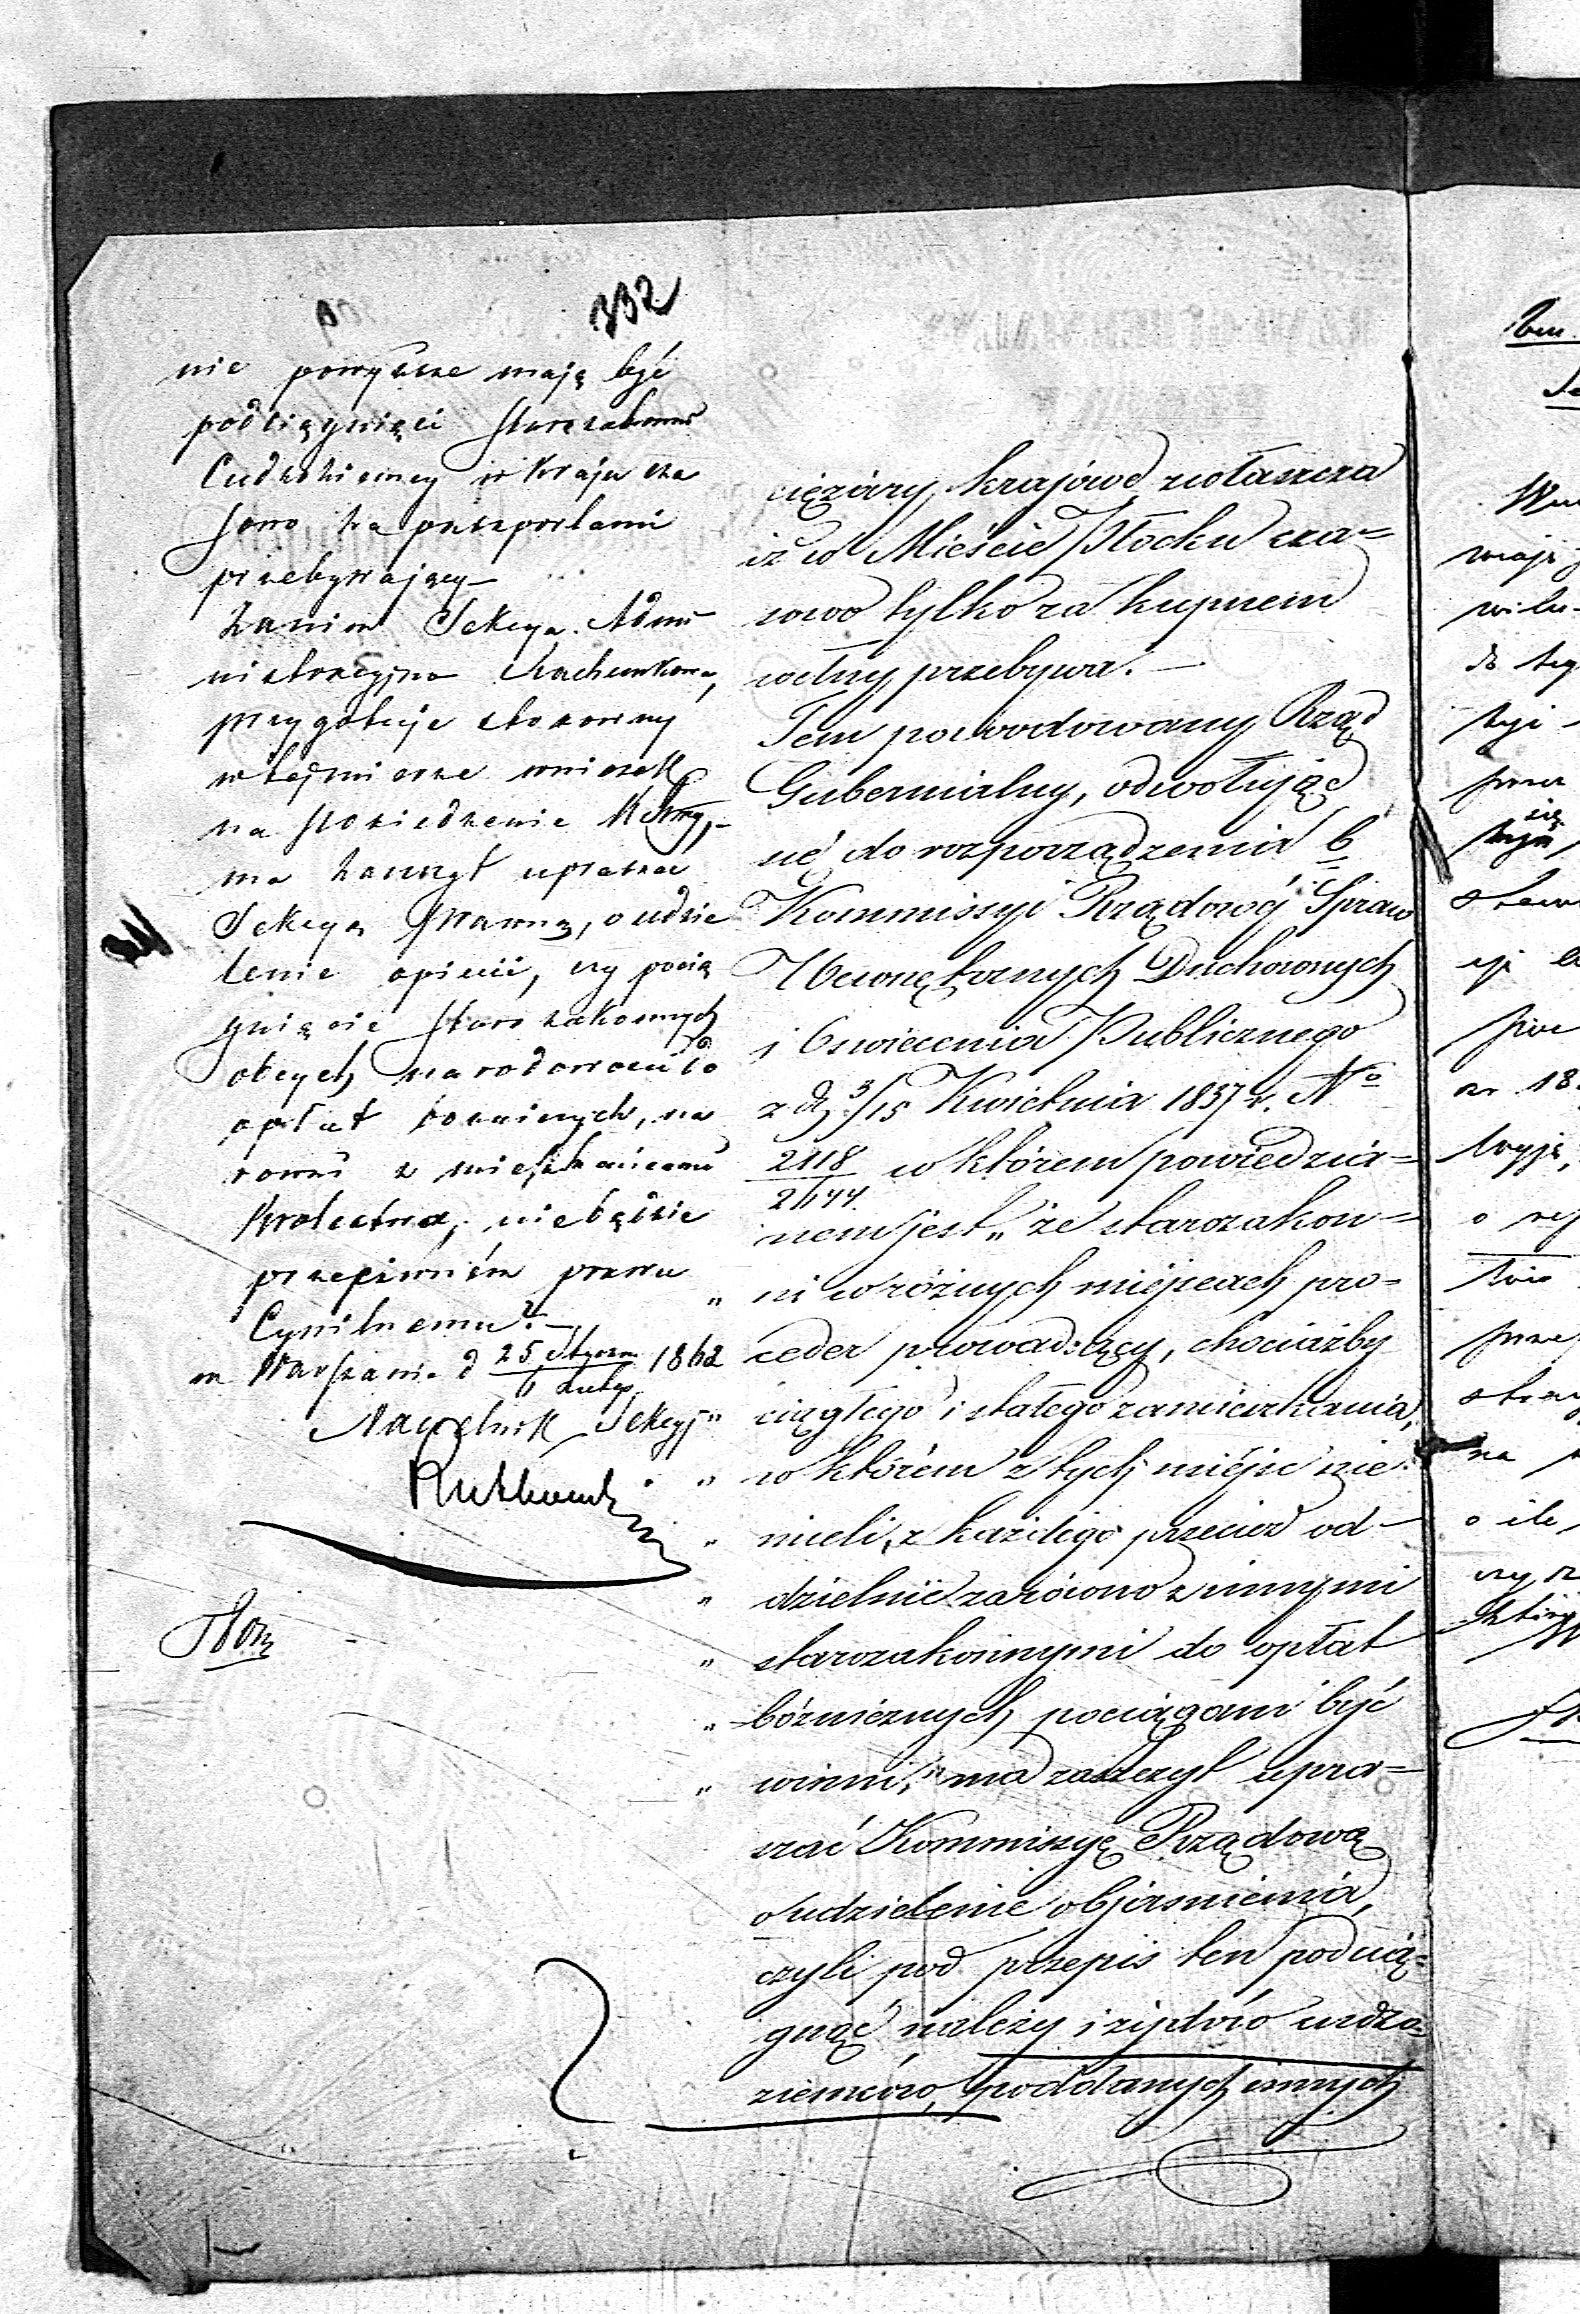 332
nie powyższe mają być
podciągnięci starozakonni
Cudzoziemcy w Kraju cza
sowo za paszportami
przebywający –
Zanim Sekcya Admi
nistracyjno Rachunkowa,
przygotuje stosowny
w tej mierze wniosek
na posiedzenie
ma zaszczyt upraszać
Sekcyą Prawną, o udzie
lenie opinii, czy pocią
gnięcie starozakonnych
obcych narodowości do
opłat bożniczych, na
równi z mieszkańcami
Królestwa, nie będzie
przeciwném prawu
Cywilnemu? –
w Warszawie d 25 Stycz. / 6 Lutego 1862
Naczelnik Sekcyi
ciężary krajowe, zwłaszcza
iż w Mieście Płocku cza=
sowo tylko za kupnem
wełny przebywa. –
Tem powodowany Rząd
Gubernialny, odwołując
się do rozporządzenia b.
Kommissyi Rządowéj Spraw
Wewnętrznych Duchownych
i Oświecenia Publicznego
z d. 3/15 Kwietnia 1837 r. No
2118/21144. w którem powiedzia=
nem jest „że starozakon=
„ ni w różnych miejscach pro=
ceder prowadzący, chociażby
„ ciągłego i stałego zamieszkania,
„ w którém z tych miejsc nie
„ mieli, z każdego przecież od–
„ dzielnie zarówno z innymi
„ starozakonnymi do opłat
„ bóżniczych pociągani być
„ winni," ma zaszczyt upra=
szać Kommissyę Rządową
o udzielenie objaśnienia,
czyli pod przepis ten podcią=
gnąć należy i żydów cudzo=
ziemców, poddanych innych